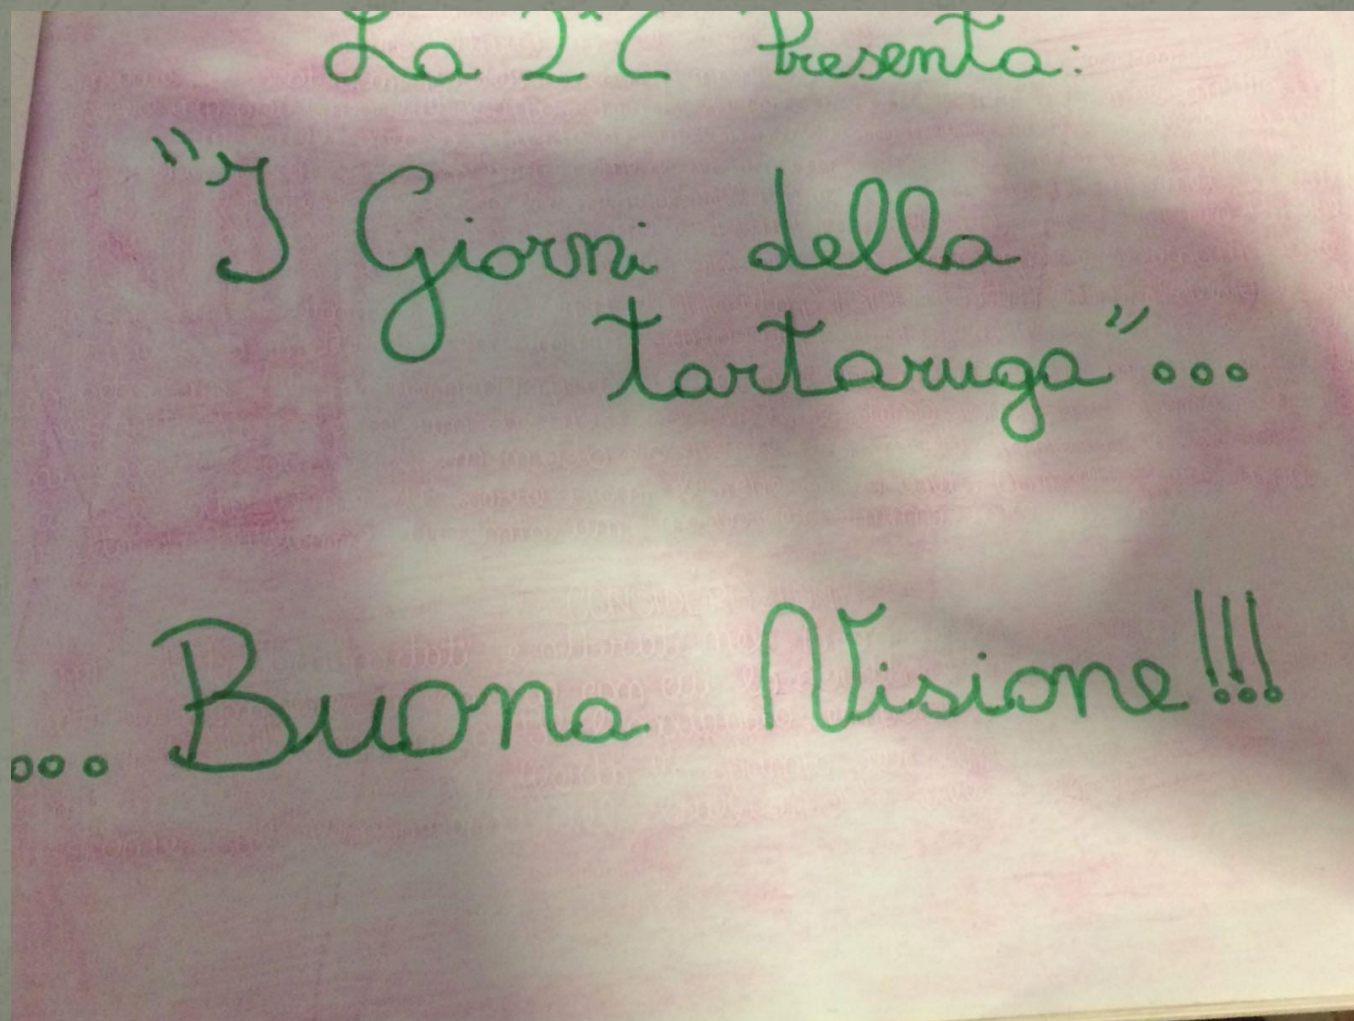 La 2^C Presenta:
"I Giorni della
tartaruga"...
... Buona Visione!!!